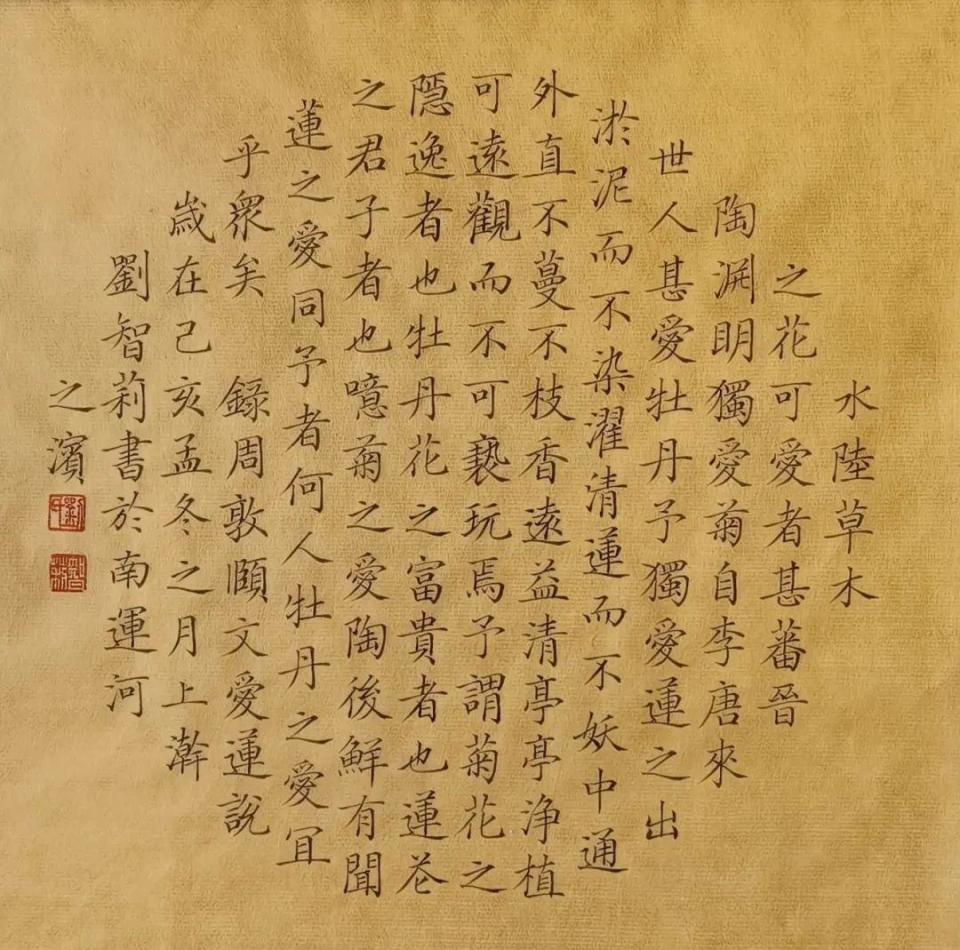 水陸草木
之花可愛者甚蕃晉
陶渊明獨愛菊自李唐來
世人甚愛牡丹予獨愛蓮之出
淤泥而不染濯清蓮而不妖中通
外直不蔓不枝香遠益清亭亭浄植
可遠觀而不可褻玩焉予謂菊花之
隱逸者也牡丹花之富貴者也蓮花
之君子者也噫菊之愛陶後鮮有聞
蓮之愛同予者何人牡丹之愛宜
乎衆矣 録周敦頤文愛蓮說
歲在己亥孟冬之月上澣
劉智莉書於南運河
之濱
智莉